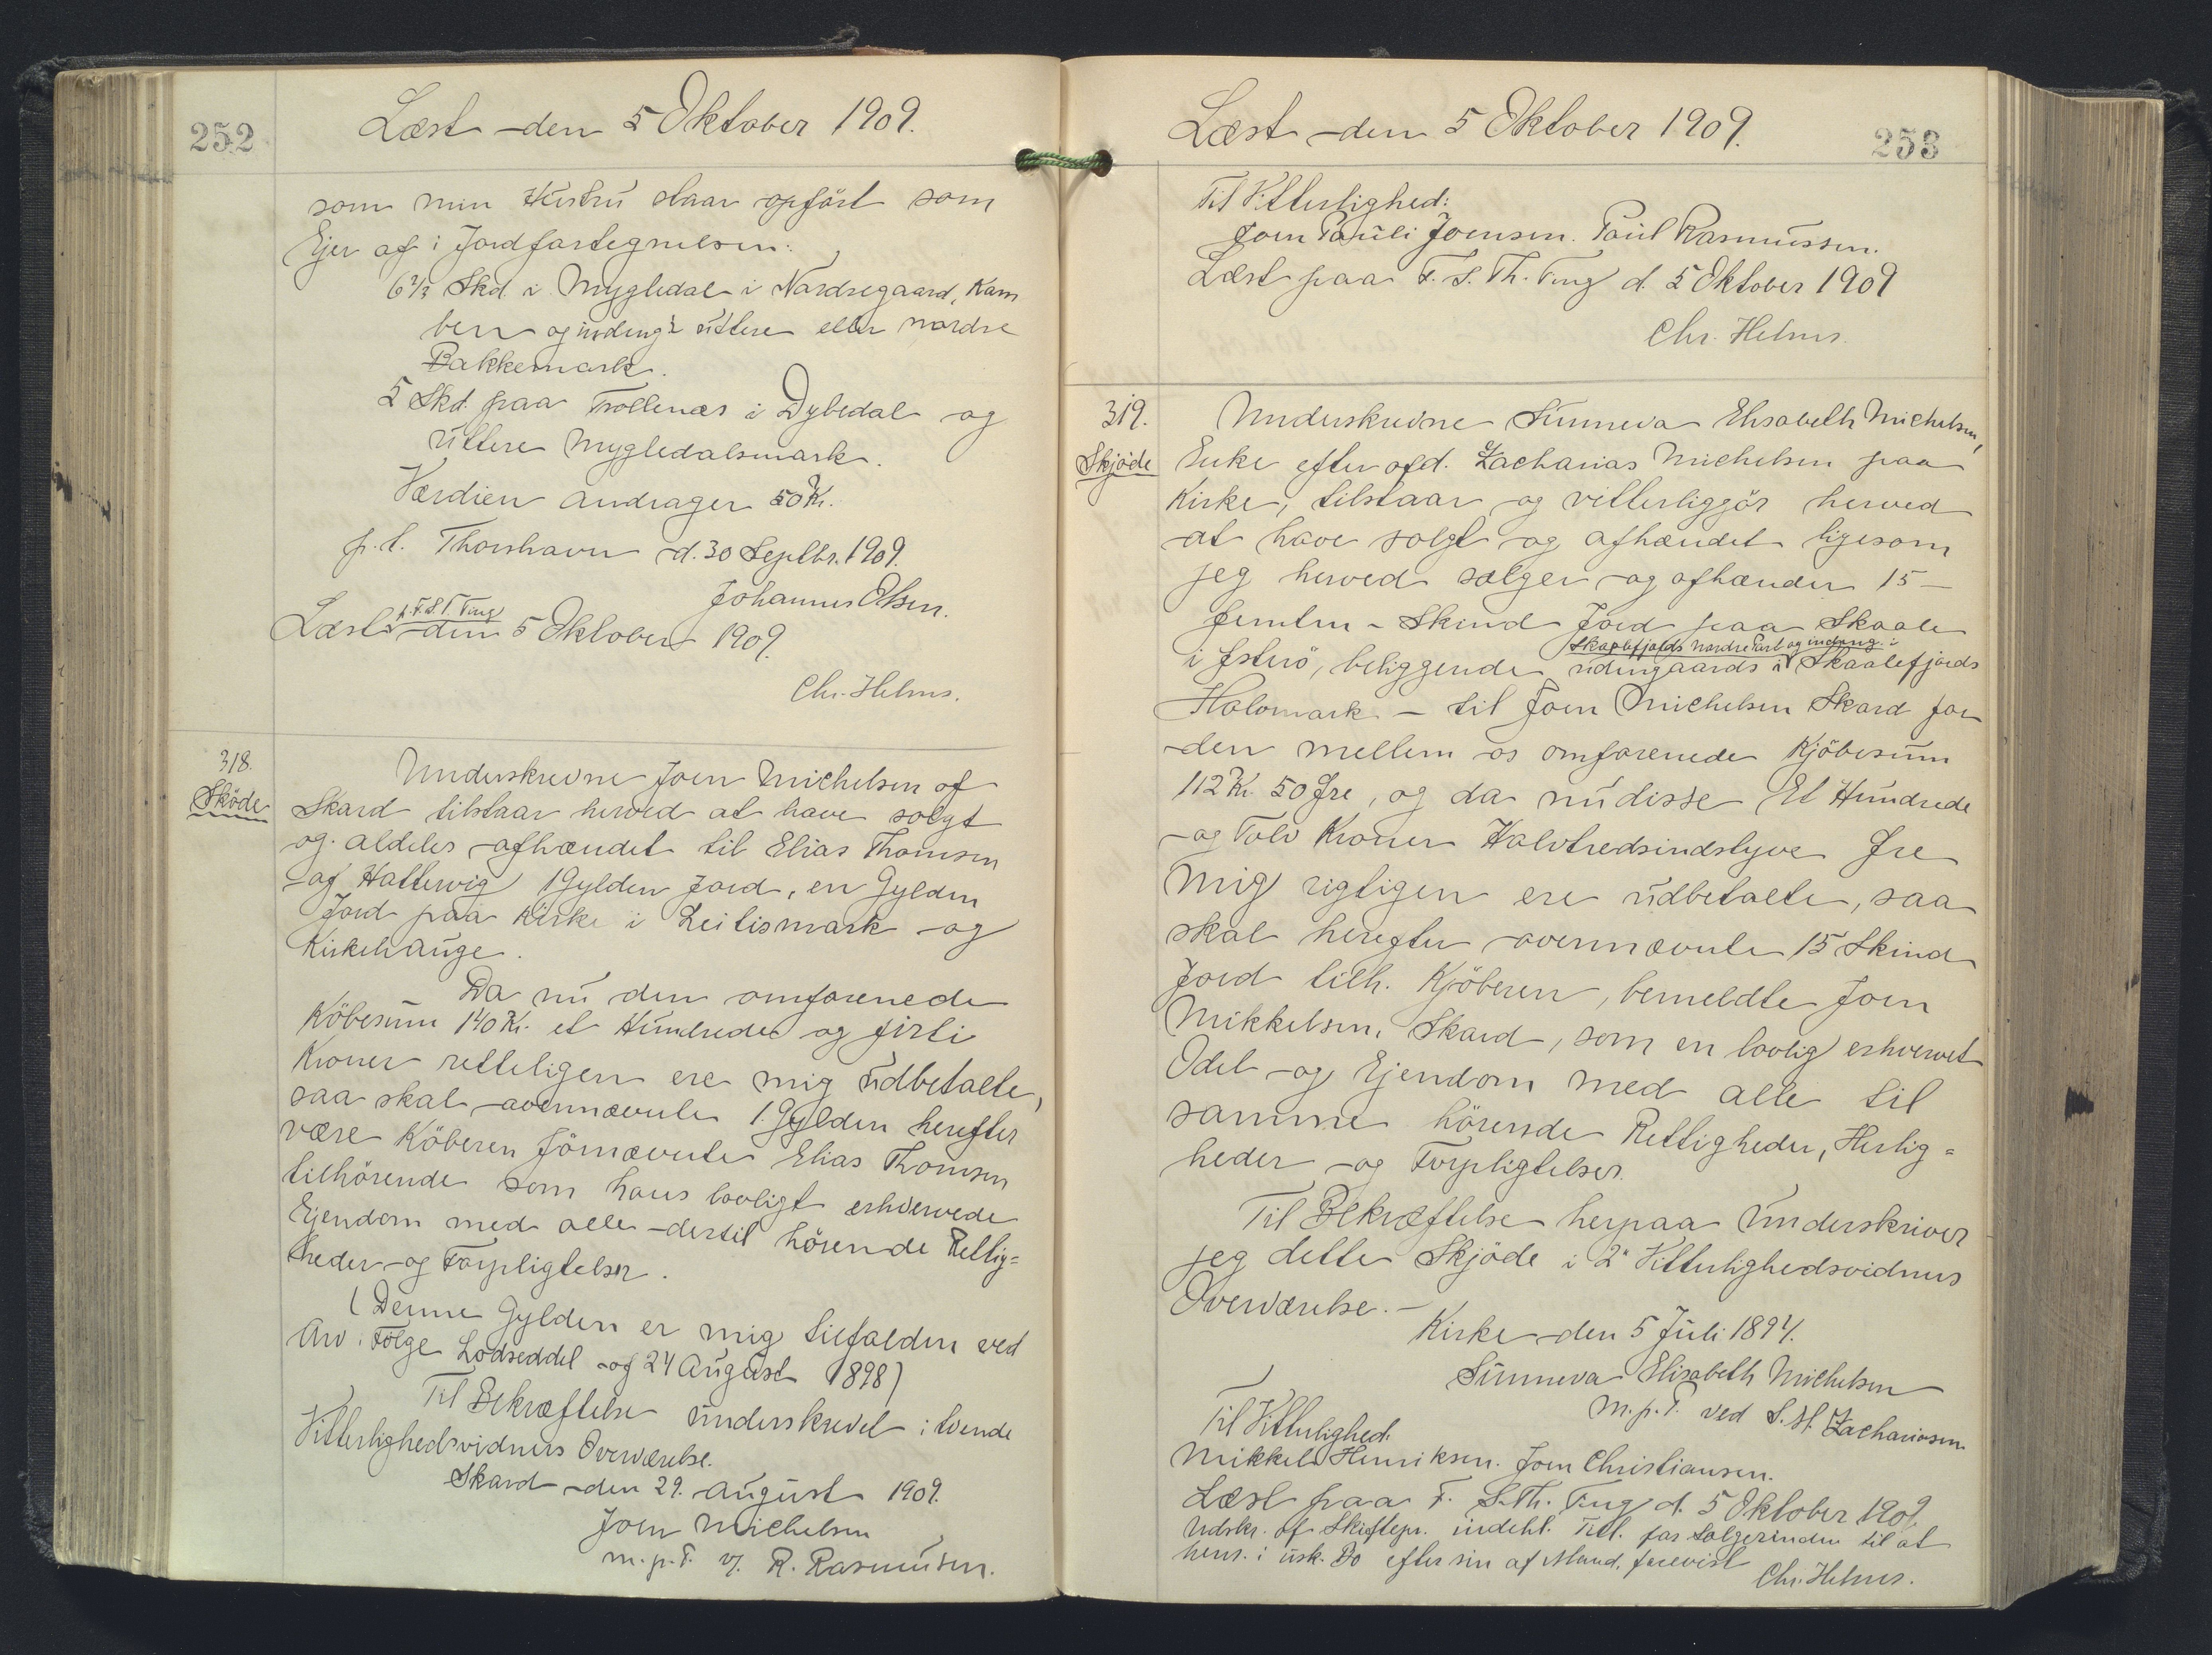 252
Læst den 5 Oktober 1909.
som min Hustru staar opført som
Ejer af i Jordfortegnelsen:
6 2/3 Skd. i Mygledal i Nordregaard, Kam
ben og indeng i üttere eller nordre
Bakkemark.
5 Skd. paa Trollenæs i Dybedal og
üttere Mygledalsmark.
Værdien andrager 50 Kr.
p.t. Thorshavn d. 30 Septbr. 1909.
Johannes Olsen.
p. F. S. T. Ting
Læst den 5 Oktober 1909.
Chr. Helms.
318.
Sköde
Underskrevne Joen Michelsen af
Skard tilstaar herved at have solgt
og aldeles afhændet til Elias Thomsen
af Hattervig 1 Gylden Jord, en Gylden
Jord paa Kirke i Leitismark og
Kirkehauge.
Da nü den omforenede
Köbesüm 140 Kr. et Hündrede og firti
Kroner retteligen ere mig üdbetalte,
saa skal ovennævnte 1 Gylden herefter
være Köberen förnævnte Elias Thomsen
tilhörende som hans lovligt erhvervede
Ejendom med alle dertil hörende Rettig=
heder og Forpligtelser.
(Denne Gylden er mig tilfalden ved
Arv i Følge Lodseddel af 24 Aügüst 1898)
Til Bekræftelse ünderskrevet i tvende
Vitterlighedsvidners Overværelse.
Skard den 29. aügüst 1909.
Joen Michelsen
m.p.F. v/ R. Rasmüsen.
Læst den 5 Oktober 1909.
253
Til Vitterlighed:
Joen Paüli Joensen. Paül Rasmüssen.
Læst paa F. S. Th. Ting d. 5 Oktober 1909
Chr. Helms.
319.
Skjöde
Underskrevne Sünneva Elisabeth Michelsen,
Enke efter afd. Zacharias Michelsen paa
Kirke, tilstaar og vitterliggjör herved
at have solgt og afhændet ligesom
jeg herved sælger og afhænder 15 –
femten – Skind Jord paa Skaale
Skaalefjords Nordre Part og indeng. i
i Østerö, beliggende üdengaards i Skaalefjords
Holomark – til Joen Michelsen Skard for
den mellem os omforenede Kjöbesüm
112 Kr. 50 Øre, og da nü disse Et Hündrede
og Tolv Kroner Halvtredsindstyve Øre
mig rigtigen ere üdbetalte, saa
skal herefter ovennævnte 15 Skind
Jord tilh. Kjöberen, bemeldte Joen
Mikkelsen, Skard, som en lovlig erhvervet
Odel og Ejendom med alle til
samme hörende Rettigheder, Herlig=
heder og Forpligtelser.
Til Bekræftelse herpaa ünderskriver
jeg dette Skjöde i 2" Vitterlighedsvidners
Overværelse. –
Kirke den 5 Jüli 1894.
Sünneva Elisabeth Michelsen
m.p.F. ved S. M. Zachariasen.
Til Vitterlighed.
Mikkel Henriksen. Joen Christiansen.
Læst paa F. S. Th. Ting d. 5 Oktober 1909.
Udskr. af Skiftepr. indeh. Till. for Sælgerinden til at
hens. i üsk. Bo efter sin af Mand. forevist
Chr. Helms.